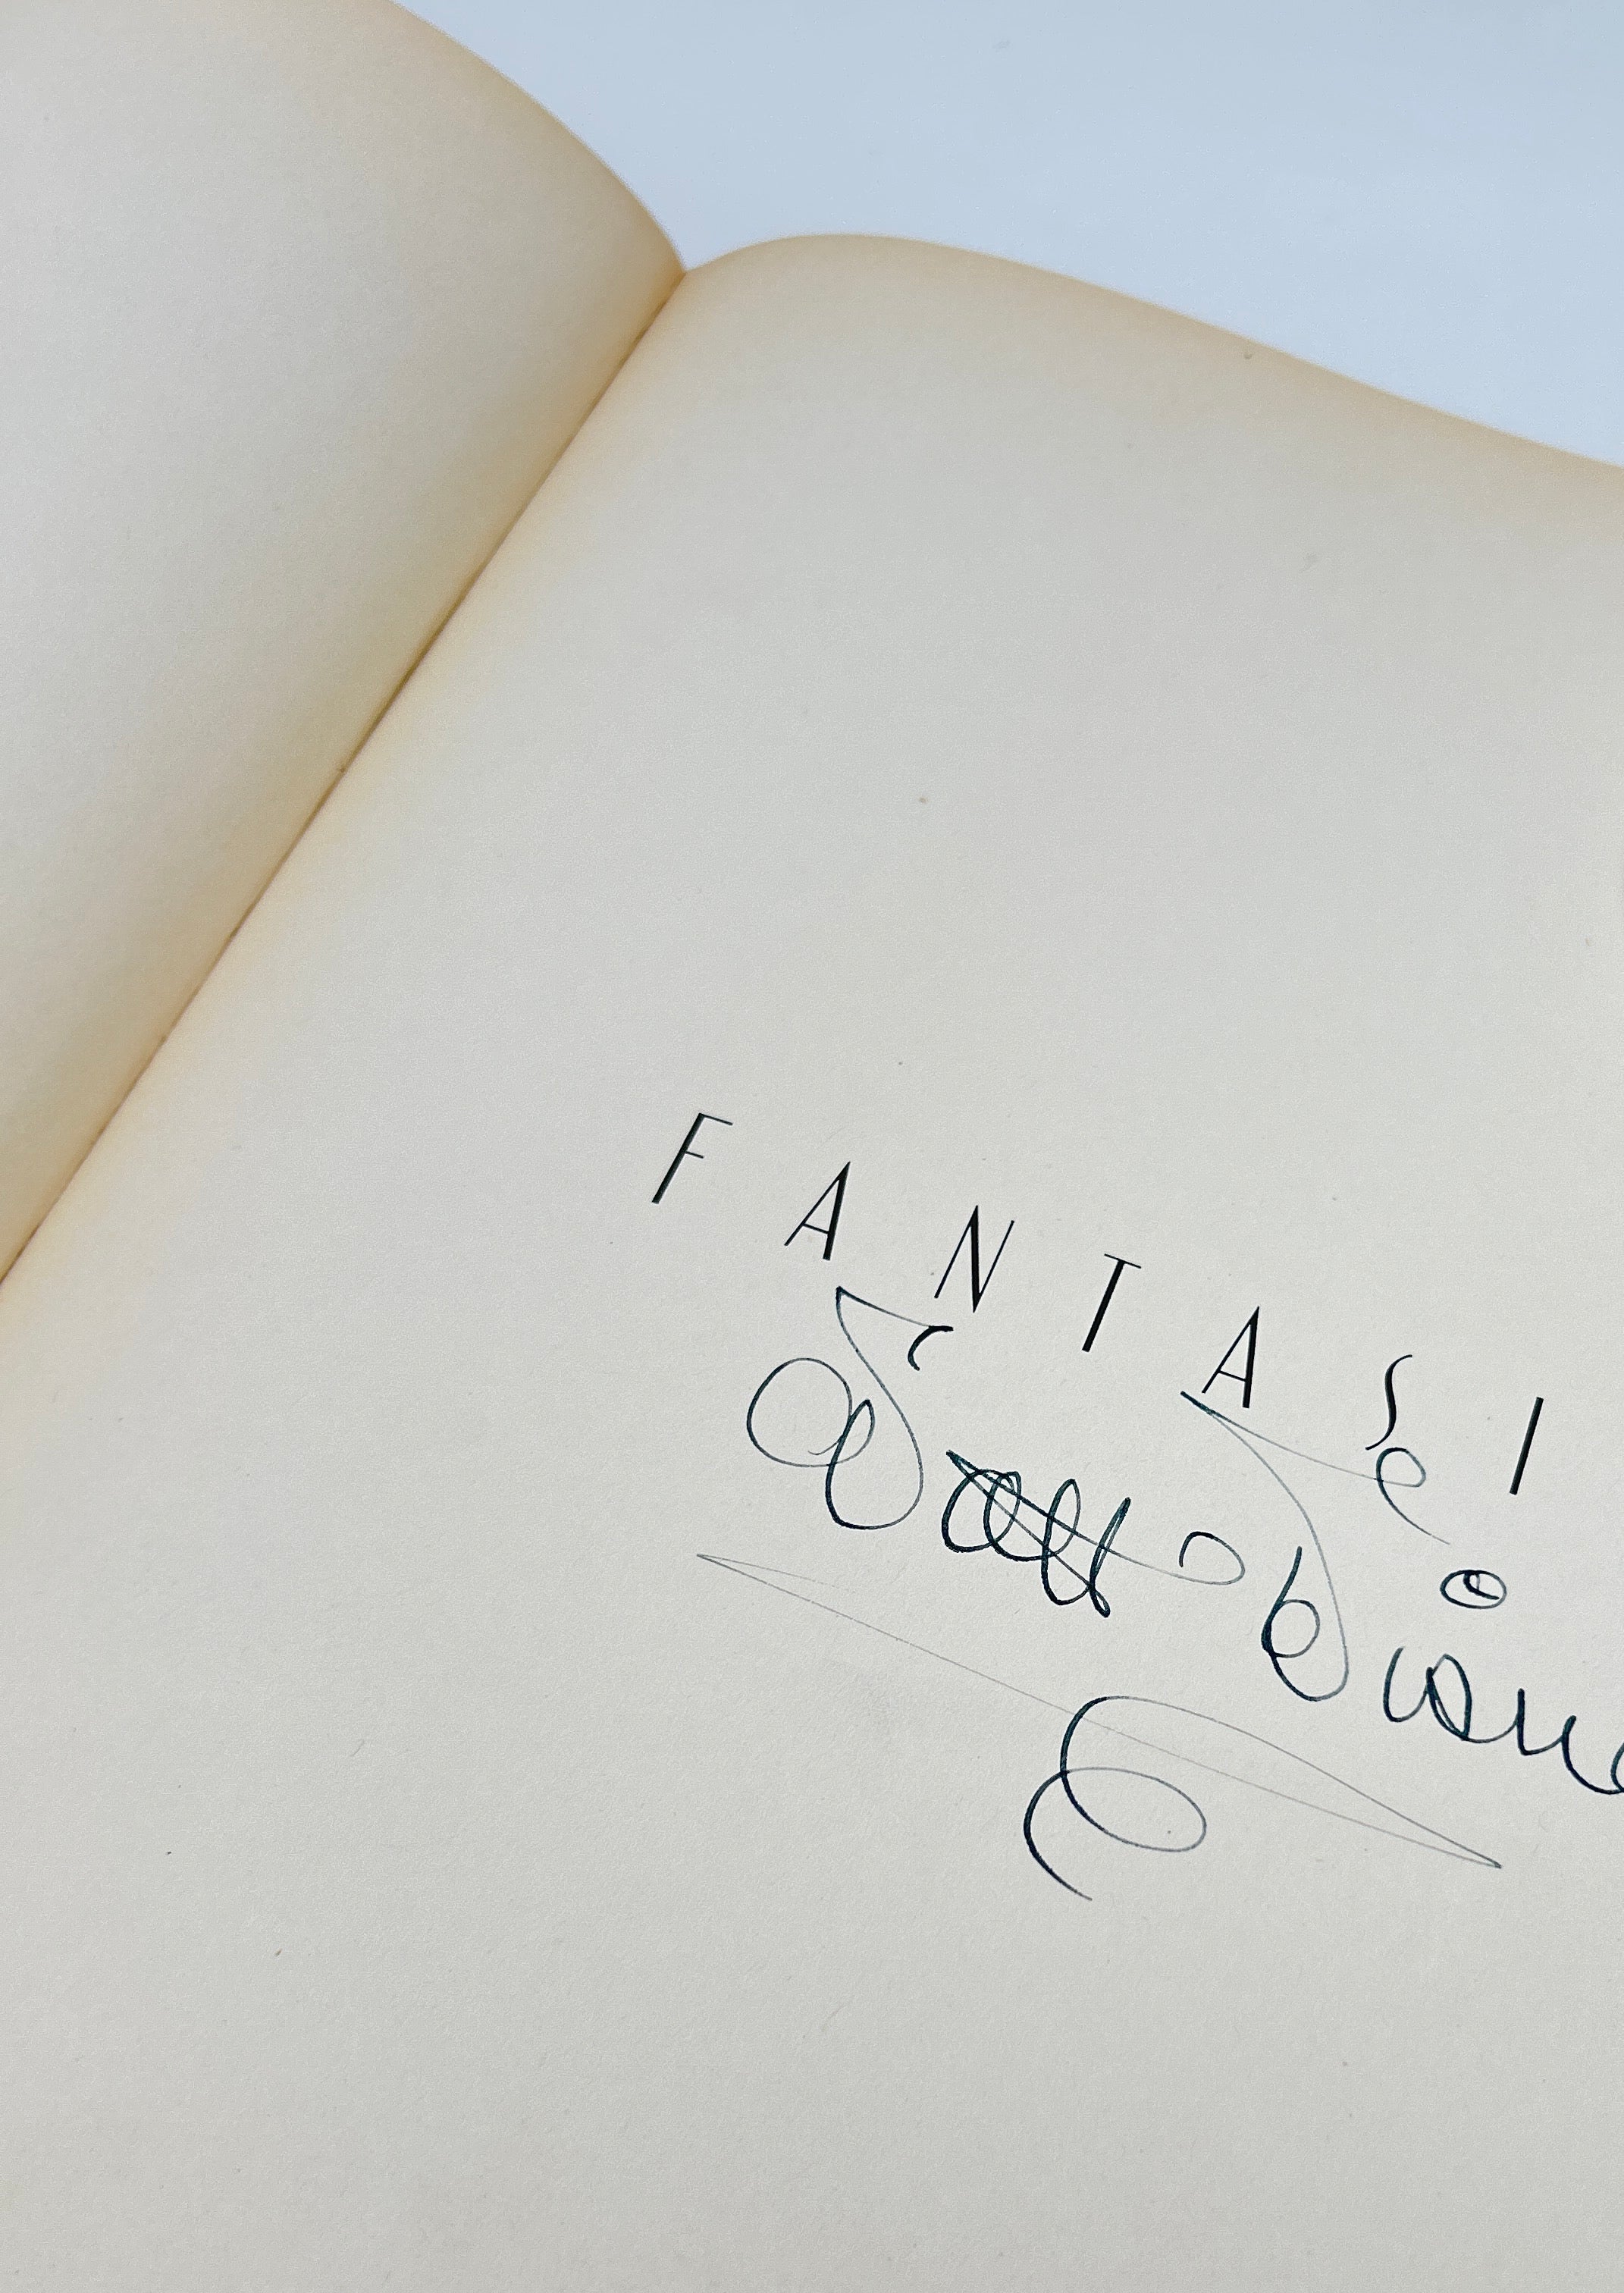 FANTASI
Walt Disne